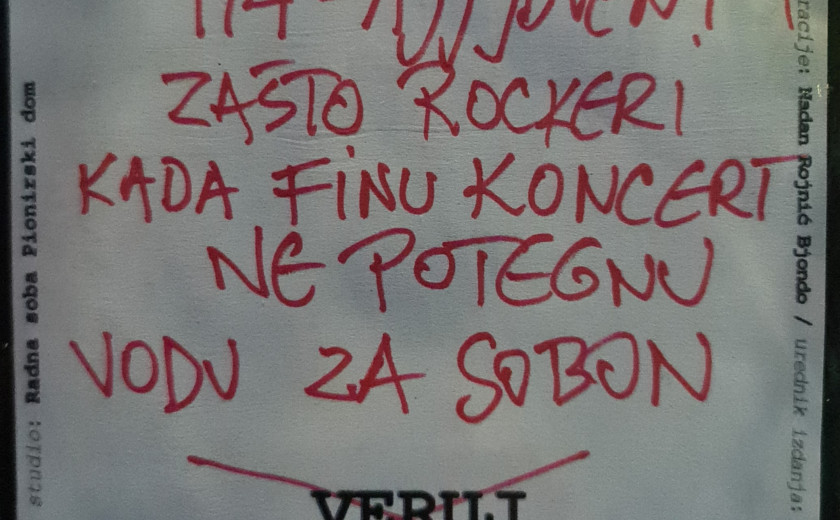 ZAŠTO ROCKERI
KADA FINU KONCERT
NE POTEGNU
VODU ZA SOBON
VERILI
studio: Radna soba Pionirski dom
racije: Nadan Rojnić Bjondo / urednik izdanja: